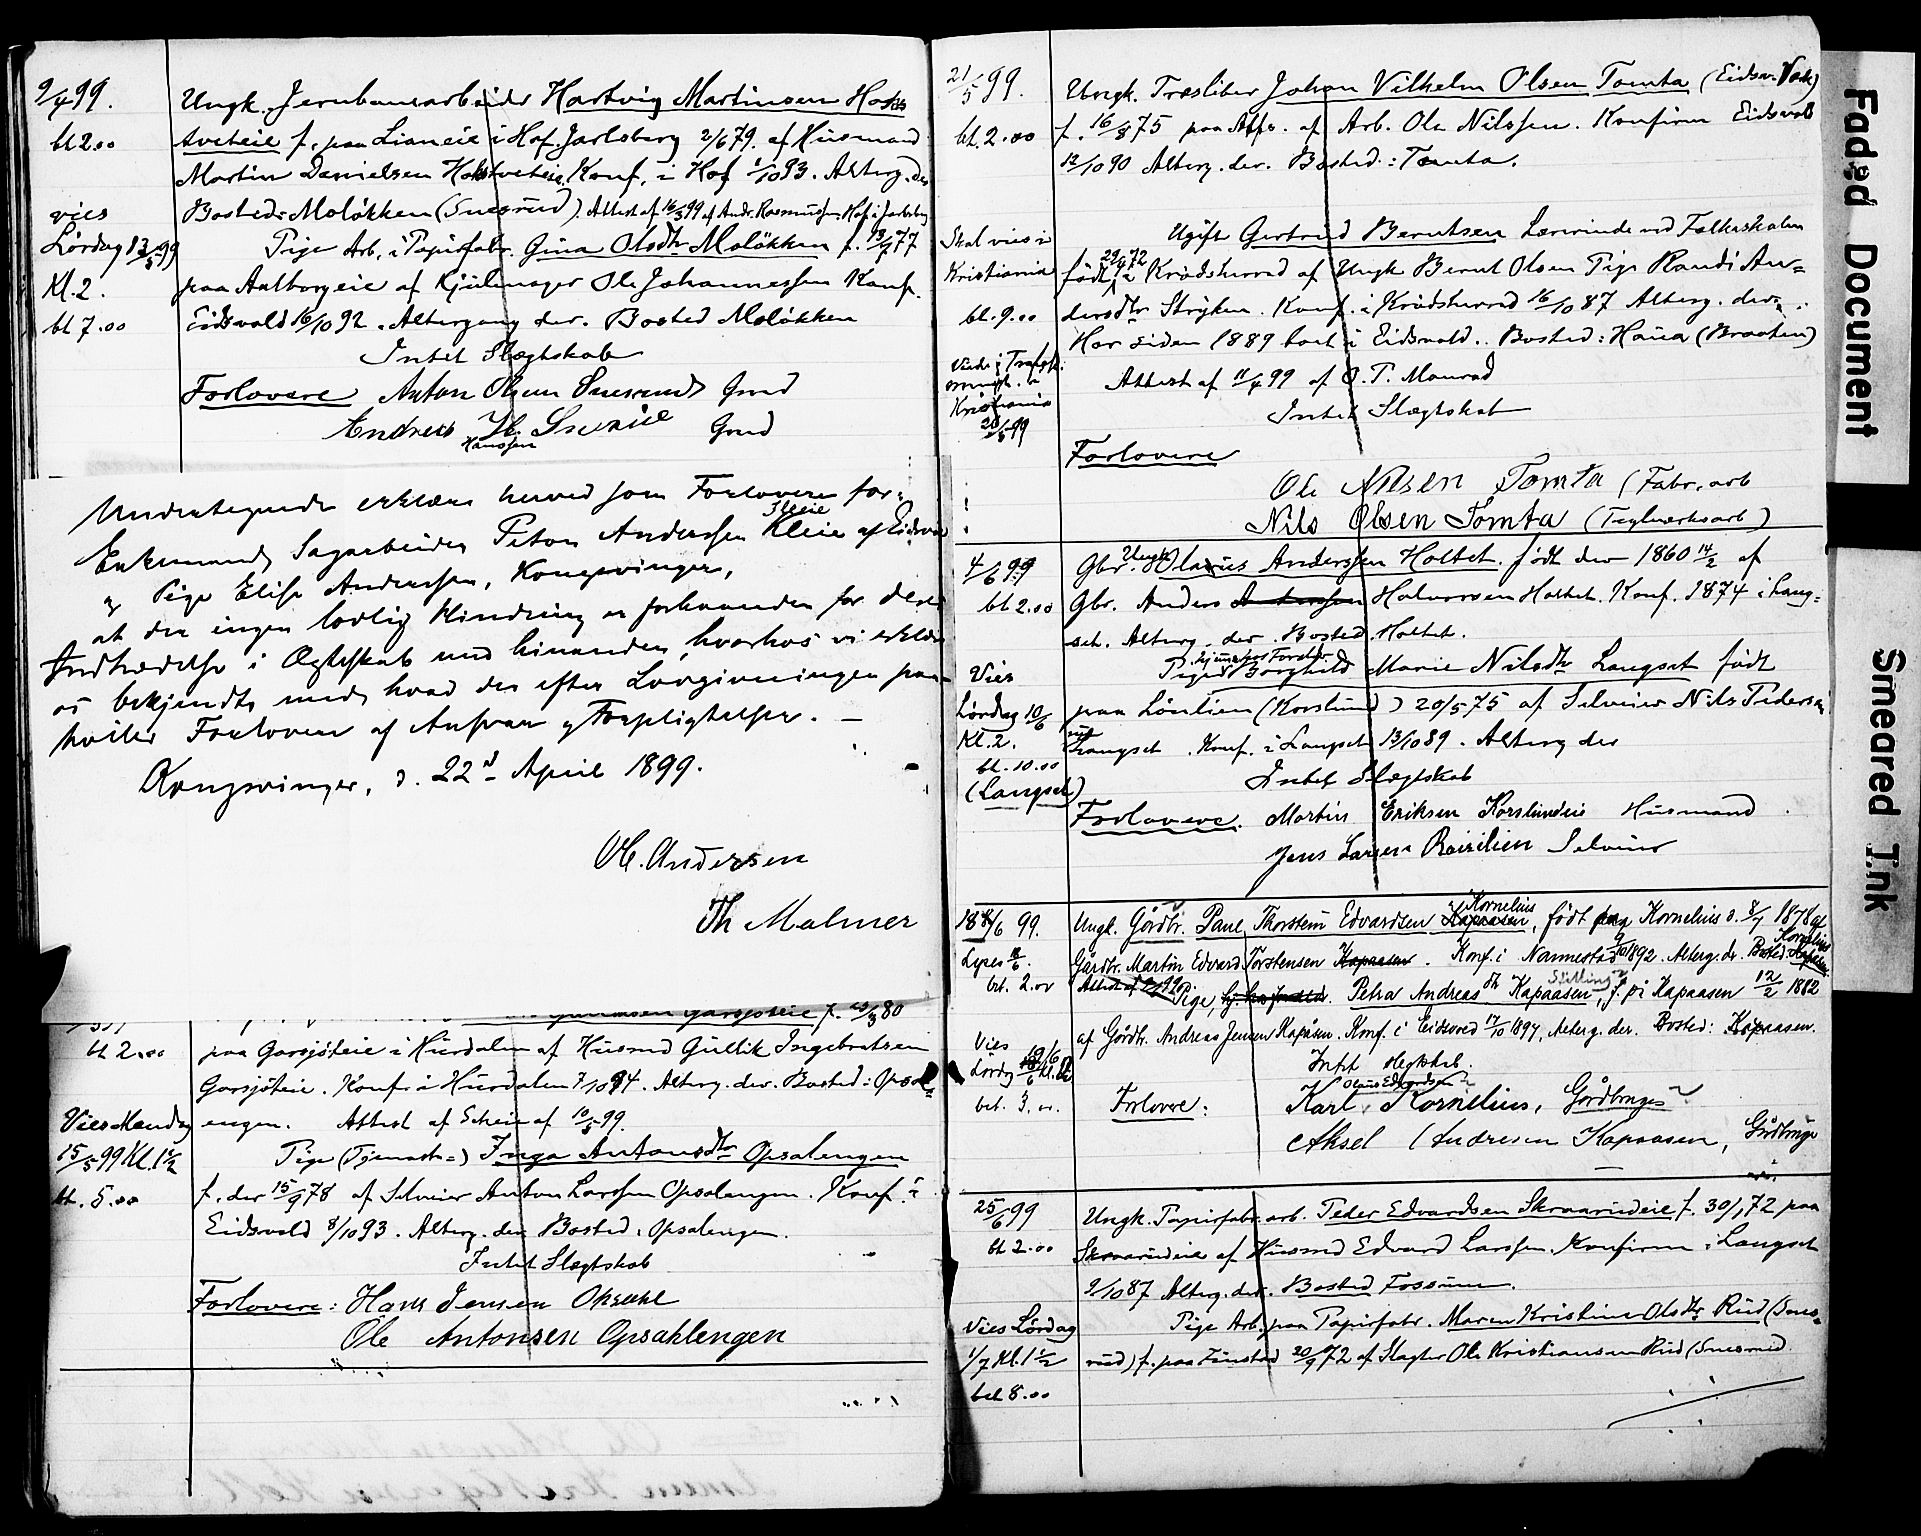 9/4 99.
bt 2.00
Ungk. Jernbanearbeider Hartvig Martinsen
f. paa Lianeie i Hof Jarlsberg 2/6 79. af Husmand
Martin Danielsen Konf. i Hof 1/10 93. Alterg. der
Bosted: Moløkken (Snesrud). Attest af 16/3 99 af Andr. Rasmussen Hof i Jarlsberg
vies
Lørdag 13/5 99
Kl. 2.
bt 7.00
Pige Arb. i Papirfabr. Gina Olsdtr Moløkken f. 77
paa af Ole Johannessen Konf.
Eidsvold 16/10 92. Altergang der. Bosted Moløkken
Intet Slægtskab
Forlovere Anton Olsen Gmd
Andreas H. Gmd
Hanssen
Undertegnede erklære herved som Forlovere for
Enkemand, Sagarbeider Peter Anderssen af
og Pige Elise Andersen, Kongsvinger,
at der ingen lovlig Hindring er forhaanden for deres
Indtrædelse i Ægteskab med hinanden, hvorhos vi erklære
os bekjendte med, hvad der efter Lovgivningen paa-
hviler Forlovere af Ansvar og Forpligtelser. —
Kongsvinger, d. 22d April 1899.
Ol. Andersen
Th Malmer
f. 80
bt 2.00
paa Garsjøeie i Hurdalen af Husmd Gullik Ingebretsen
Garsjøeie. Konf. i Hurdalen 7/10 94. Alterg. der. Bosted: Opsal-
engen. Attest af af 10/5 99.
Vies Mandag
15/5 99 Kl. 1 1/2
bt. 5.00
Pige (Tjeneste-) Inga Antonsdtr Opsalengen
f. der 15/9 78 af Selveier Anton Larssen Opsalengen. Konf. i
Eidsvold 8/10 93. Alterg. der Bosted: Opsalengen.
Intet Slægtskab
Forlovere: Hans Jensen Opsahl
Ole Antonsen Opsahlengen
21/5 99.
bt. 2.00
Ungk. Træsliber Johan Vilhelm Olsen Tomta (Eidsv. Værk)
f. 16/8 75 paa af Arb. Ole Nilssen. Konfirm Eidsvold
12/10 90 Alterg. der. Bosted: Tomta.
Skal vies i
Kristiania
bt. 9.00
Ugift Gertrud Berntsen Lærerinde ved Folkeskolen
født 29/4 72 i Krødsherred af Ungk Bernt Olsen Pige Randi An-
dersdtr Stryken. Konf. i Krødsherred 16/10 87 Alterg. der.
Har siden 1889 boet i Eidsvold. Bosted: Haua (Braaten)
Attest af 11/4 99 af O. T. Monrad
Intet Slægtskab
Viede i Trefoldigh.
menigh. i
Kristiania
99
Forlovere
Ole Nilsen Tomta (Fabr. arb
Nils Olsen Tomta (Teglværksarb)
4/6 99
bt 2.00
Gbr. Ungk. Olavus Anderssen Holtet. født der 1860 14/2 af
Gbr. Anders Halvorsen Holtet. Konf. 1874 i Lang-
set. Alterg. der. Bosted. Holtet.
Vies
Lørdag 10/6
Kl. 2.
bt. 10.00
(Langset)
hjemme hos Forældr
Pige Borghild Marie Nilsdtr Langset født
paa Lønlien (Korslund) 20/5 75 af Selveier Nils Pedersen
Langset. Konf. i Langset 13/10 89. Alterg der
Intet Slægtskab
Forlovere. Martin Eriksen Korslundeie Husmand
Jens Larsen Selveier
18/6 99.
Lyses 18/6.
bet. 2.00
Ungk. Gårdbr. Paul Thorstein Edvardsen Kornelius, født på Kornelius d. 8/7 1878 af
Gårdbr. Martin Edvard Torstensen Kapaasen. Konf. i Nannestad 1892. Alterg. dr. Bosted: Kornelius
Pige, Petra Andreasdtr Kapaasen, f. på Kapaasen 12/2 1882
af Gårdbr. Andreas Jensen Kapåsen. Konf. i Eidsvold 17/10 1897, Alterg. der. Bosted: Kapaasen.
Vies
Lørdag
bet. 3.00.
Intet slegtskab.
Olaus Edvardsen
Forlovere: Karl Kornelius, Gårdbruger
Aksel Andresen Kapaasen, Gårdbruger
25/6 99
bt 2.00
Ungk. Papirfabr. arb. Peder Edvardsen Skraarudeie f. 30/1 72 paa
Skraarudeie af Husmd Edvard Larssen. Konfirm i Langset
9/10 87 Alterg. der. Bosted Fossum.
Vies Lørdag
1/7 Kl. 1 1/2
bet 8.00
Pige Arb. paa Papirfabr. Maren Kristine Olsdtr Rud (Snes-
rud) f. paa Finstad 20/9 72 af Slagter Ole Kristiansen Rud (Snesrud
Faded Document
Smeared Ink